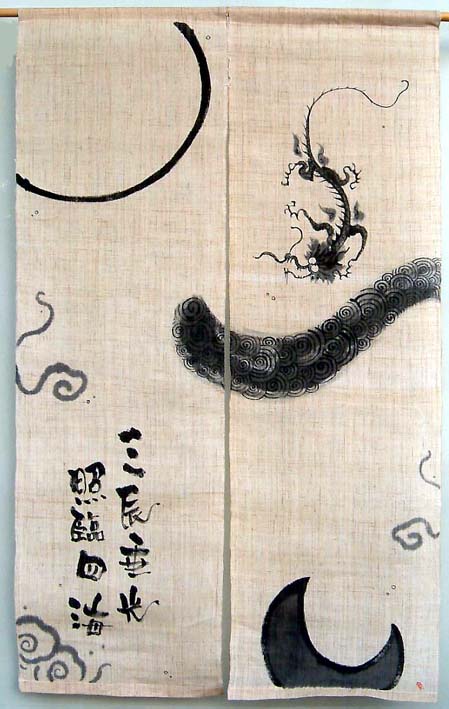 三辰垂光
照臨四海